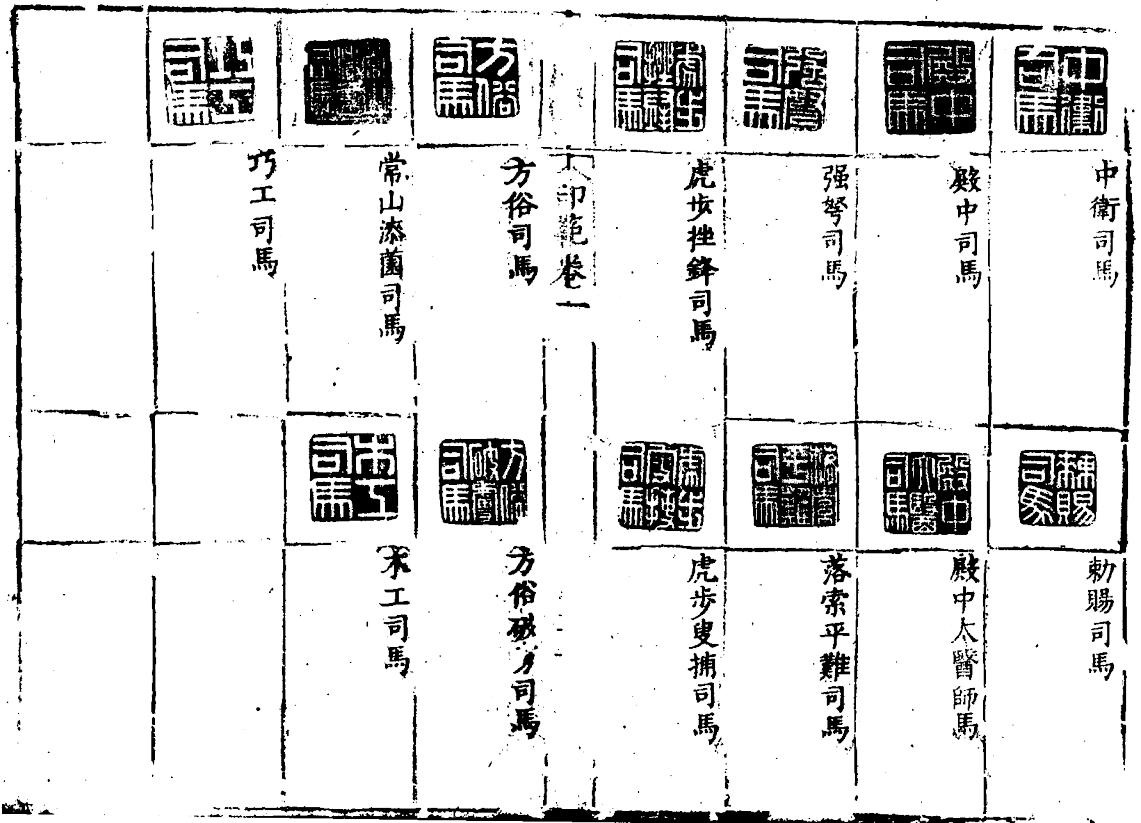 中衛司馬
勅賜司馬
殿中司馬
殿中太醫師馬
强弩司馬
落索平難司馬
虎步挫鋒司馬
虎步叟捕司馬
印範卷一
方俗司馬
方俗司馬
常山漆園司馬
木工司馬
巧工司馬